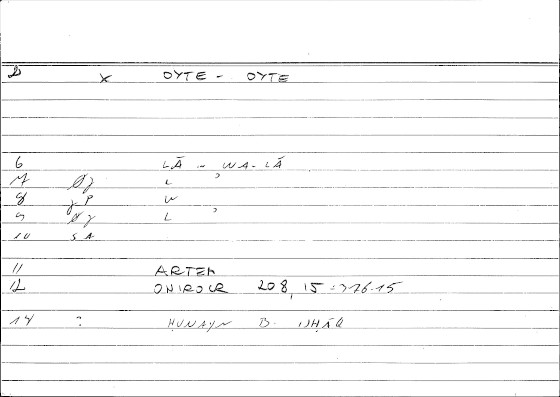 D x OYTE - OYTE
6 LĀ - WA-LĀ
7 Øj L ʾ
8 jP W
9 Øj L ʾ
10 SA
11 ARTEM
12 ONIROCR 208,15
14 ? ḤUNAYN B. ISḤĀQ